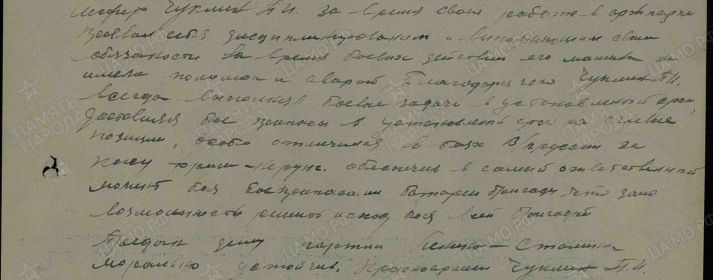 Шофер Чуклин П.И. за время своей работы в артпарке
показал себя дисциплинированным и выполняющим свои
обязанности За время боевых действий его машина не
имела поломок и аварий Благодаря чего Чуклин П.И.
всегда выполнял боевые задачи в установленный срок,
доставлял бое припасы в установленный срок на огневые
позиции, особо отличился в боях В/пруссии за
косу Фриш-Нерунг. обеспечив в самый ответственный
момент боя боеприпасами батареи бригады, что дало
возможность решить исход боя всей бригады
Предан делу партии Ленина-Сталина
Морально устойчив. Красноармеец Чуклин П.И.
ПАМЯТЬ НАРОДА
ЦАМО РФ